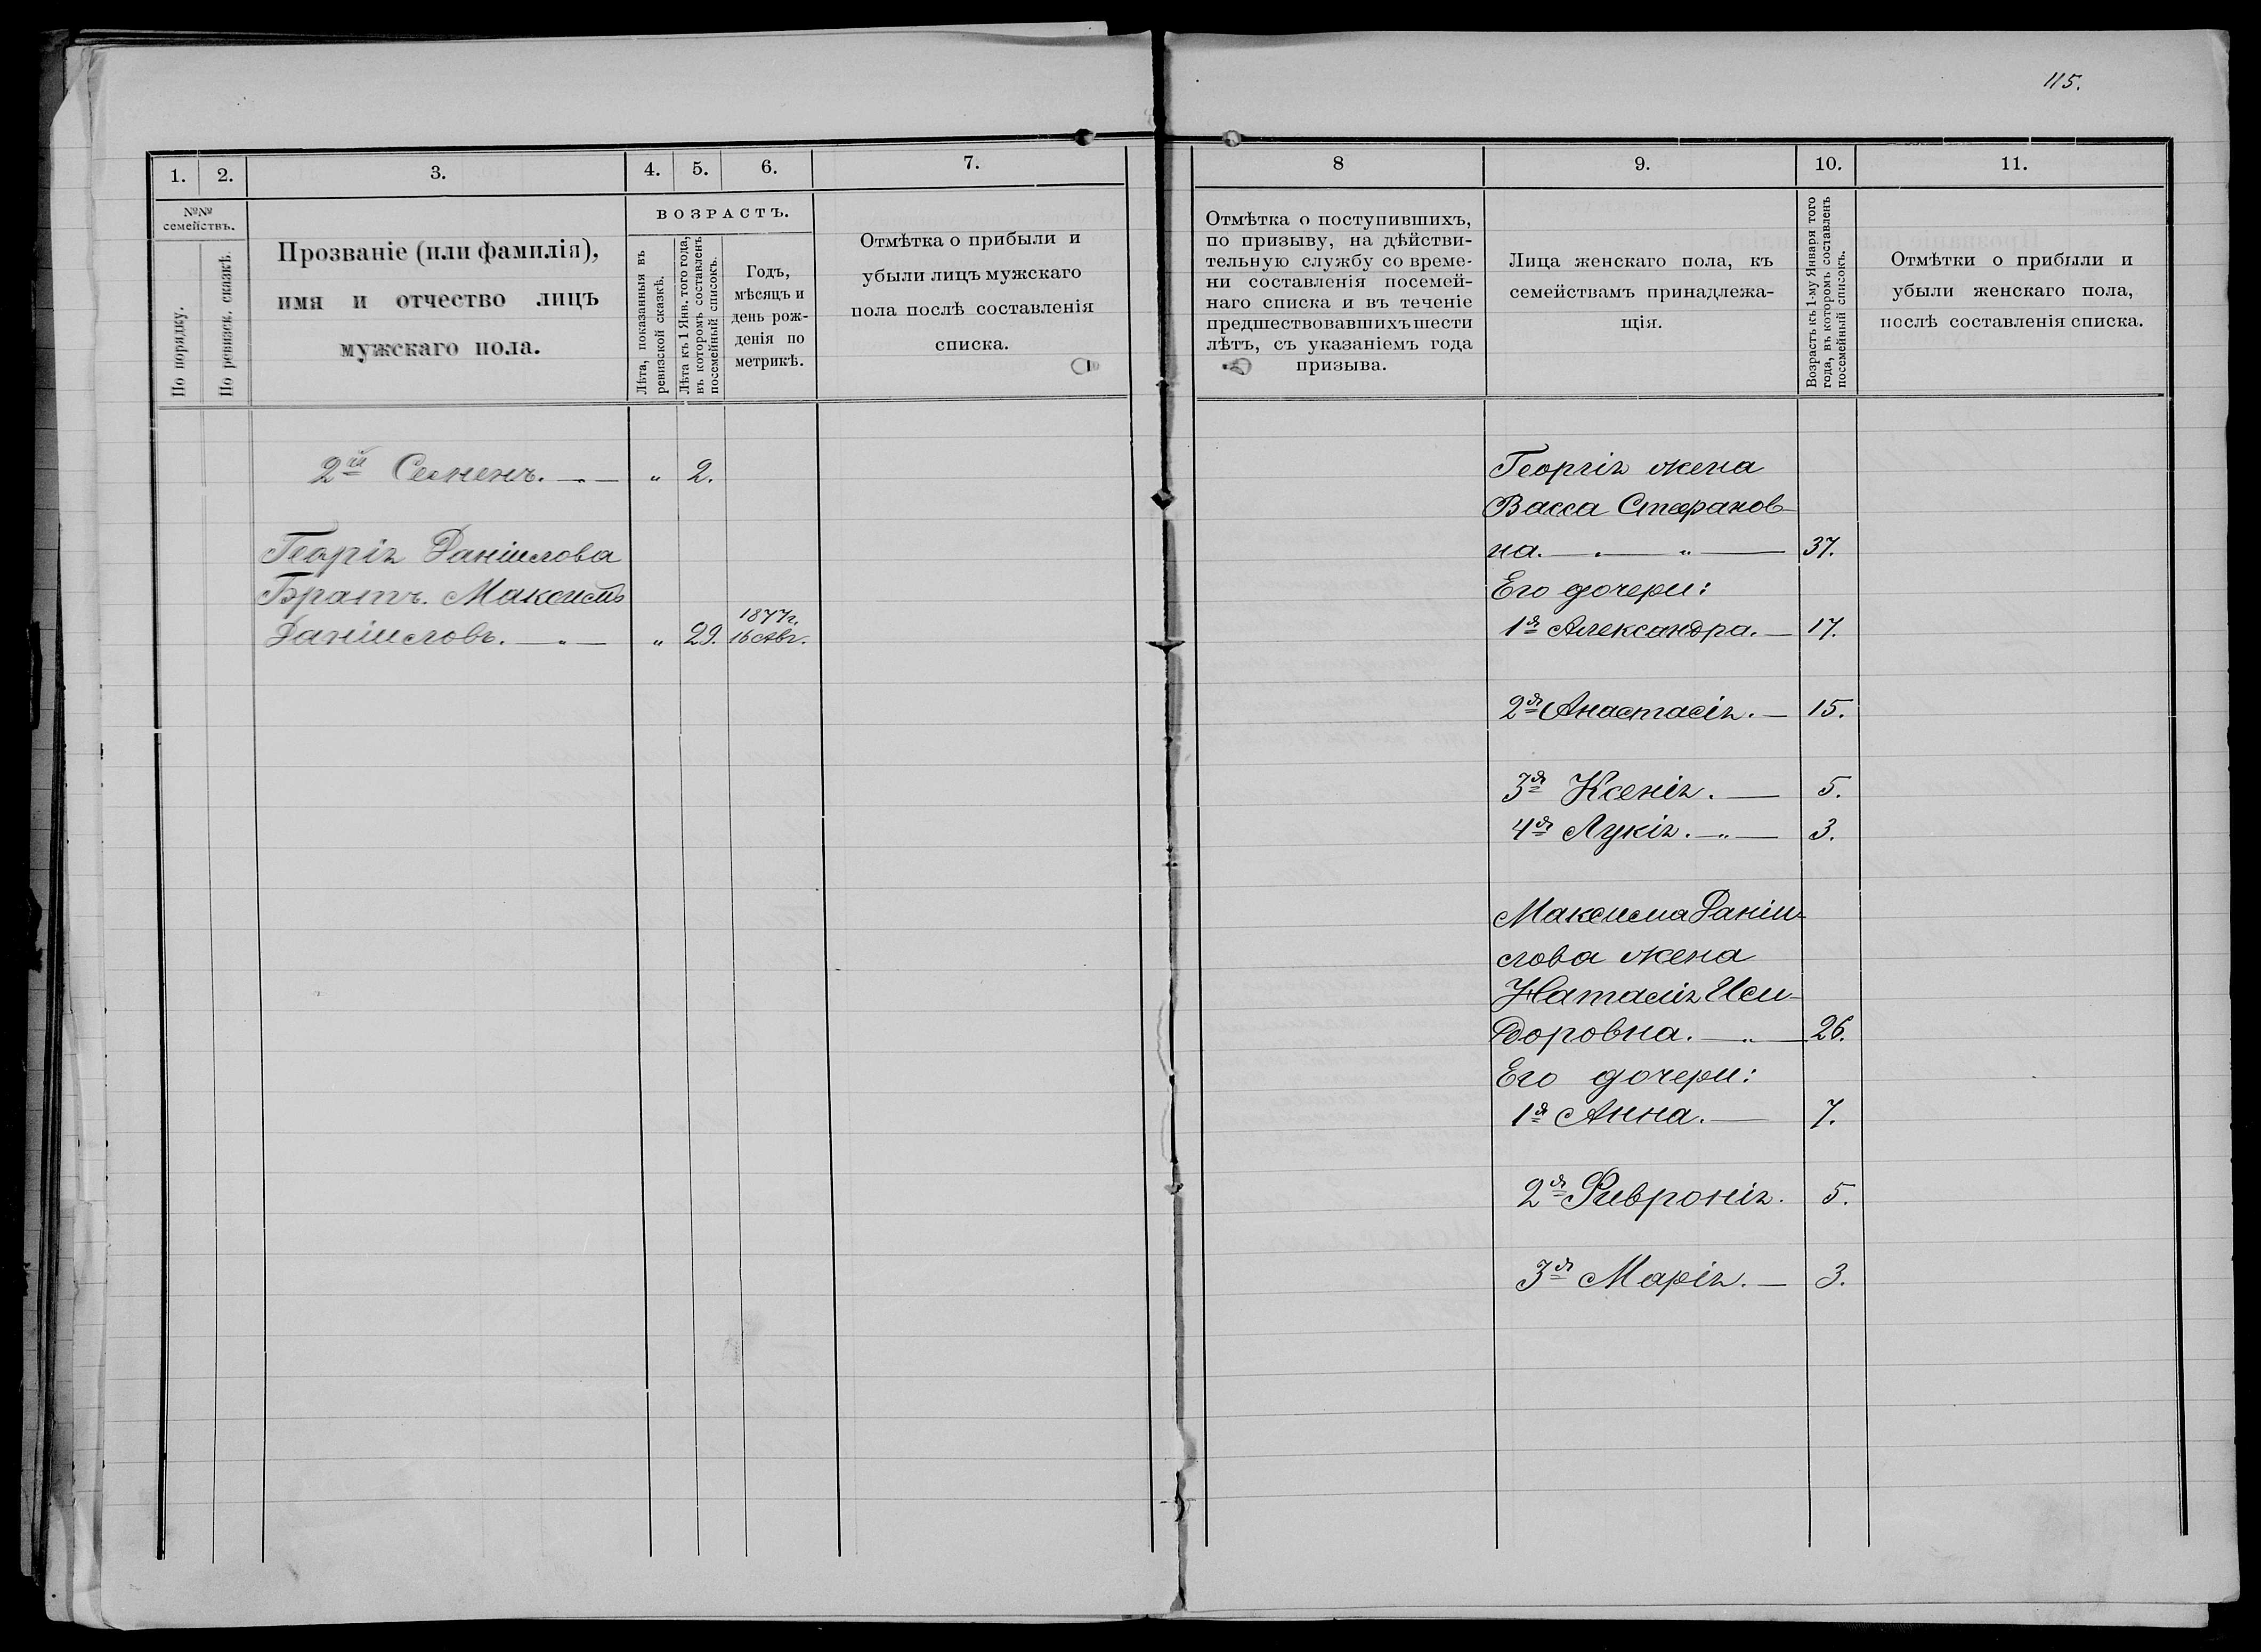 115.
1. 2. 3. 4. 5. 6. 7.
№№ семействъ.
По порядку.
По ревизск. сказкѣ.
Прозваніе (или фамилія),
имя и отчество лицъ
мужскаго пола.
ВОЗРАСТЪ.
Лѣта, показанныя въ
ревизской сказкѣ.
Лѣта къ 1 Янв. того года,
въ которомъ составленъ
посемейный списокъ.
Годъ,
мѣсяцъ и
день рож-
денія по
метрикѣ.
Отмѣтка о прибыли и
убыли лицъ мужскаго
пола послѣ составленія
списка.
2й Семенъ. — „ 2.
Георгія Даніилова
Братъ. Максимъ
Даніиловъ. — „ — „ 29. 1877г.
16 Авг.
8 9. 10. 11.
Отмѣтка о поступившихъ,
по призыву, на дѣйстви-
тельную службу со време-
ни составленія посемей-
наго списка и въ теченіе
предшествовавшихъ шести
лѣтъ, съ указаніемъ года
призыва.
Лица женскаго пола, къ
семействамъ принадлежа-
щія.
Возрастъ къ 1-му Января того
года, въ которомъ составленъ
посемейный списокъ.
Отмѣтки о прибыли и
убыли женскаго пола,
послѣ составленія списка.
Георгія жена
Васса Стефанов-
на. — „ — „ — 37.
Его дочери:
1я Александра. — 17.
2я Анастасія. — 15.
3я Ксенія. — 5.
4я Лукія. — „ — 3.
Максима Даніи-
лова жена
Наталія Иси-
доровна. — „ — 26.
Его дочери:
1я Анна. — 7.
2я Фивронія. 5.
3я Марія. — 3.